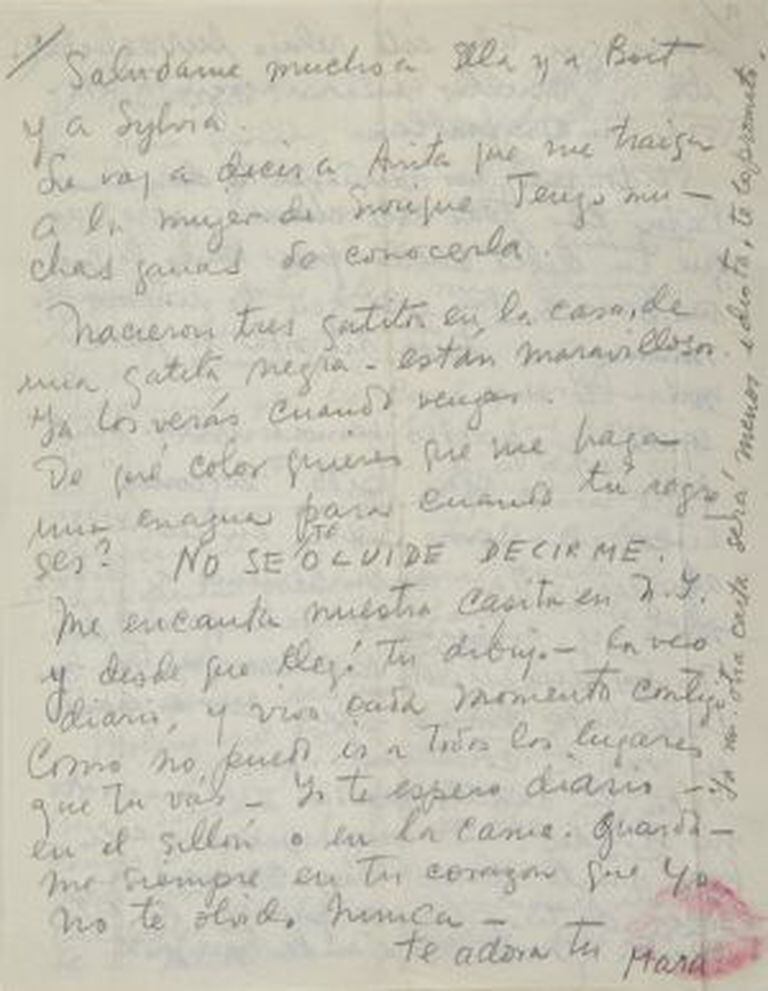 Saludame mucho a Ella y a Boit
y a Sylvia.
Le voy a decir a Anita que me traiga
a la mujer de Enrique Tengo mu-
chas ganas de conocerla.
Nacieron tres gatitos en la casa, de
una gatita negra - están maravillosos.
Ya los verás cuando vengas.
De qué color quieres que me haga
una enagua para cuando tú regre
ses? NO SE TE OLVIDE DECIRME.
Me encanta nuestra casita en N.Y.
y desde que llegó tu dibujo - la veo
diario, y vivo cada momento contigo
Como no puedo ir a todos los lugares
que tu vas - Yo te espero diario -
en el sillón o en la cama. Guarda-
me siempre en tu corazon que yo
no te olvido nunca -
te adora tu Mara
Ya mi otra carta será menos idiota, te lo prometo.